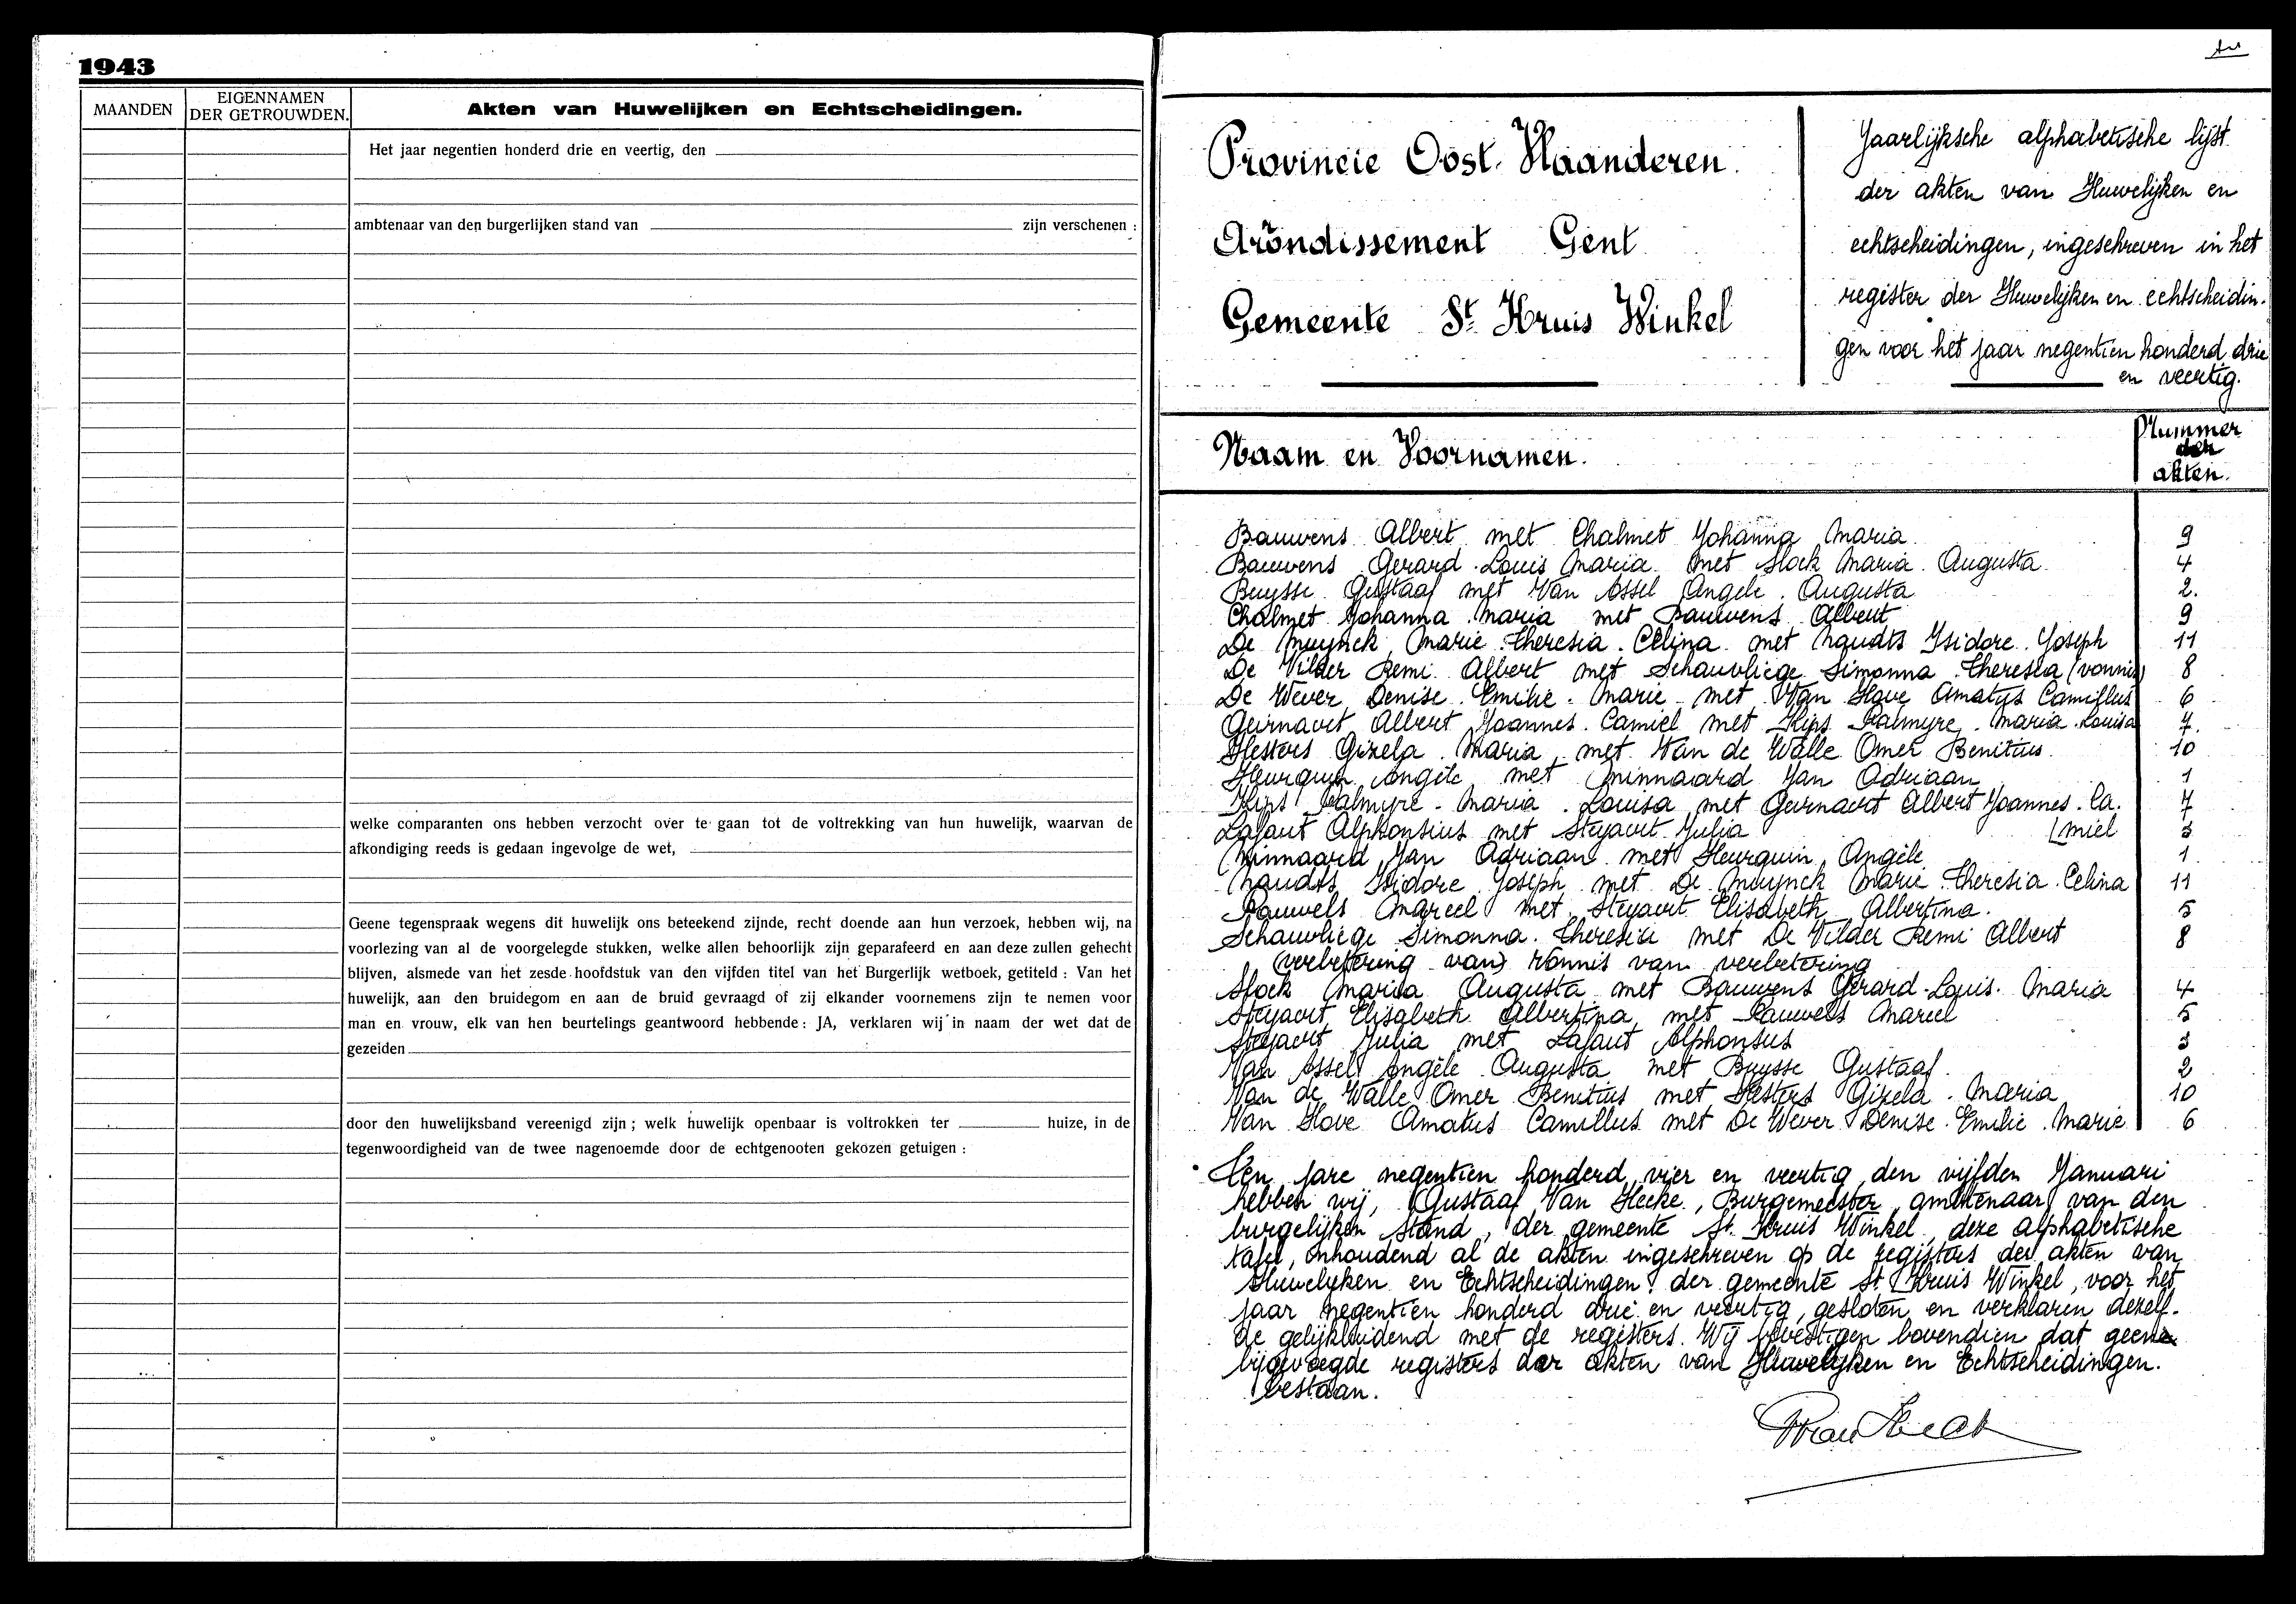 1943
MAANDEN
EIGENNAMEN
DER GETROUWDEN.
Akten van Huwelijken en Echtscheidingen.
Het jaar negentien honderd drie en veertig, den
ambtenaar van den burgerlijken stand van zijn verschenen :
welke comparanten ons hebben verzocht over te gaan tot de voltrekking van hun huwelijk, waarvan de
afkondiging reeds is gedaan ingevolge de wet,
Geene tegenspraak wegens dit huwelijk ons beteekend zijnde, recht doende aan hun verzoek, hebben wij, na
voorlezing van al de voorgelegde stukken, welke allen behoorlijk zijn geparafeerd en aan deze zullen gehecht
blijven, alsmede van het zesde hoofdstuk van den vijfden titel van het Burgerlijk wetboek, getiteld : Van het
huwelijk, aan den bruidegom en aan de bruid gevraagd of zij elkander voornemens zijn te nemen voor
man en vrouw, elk van hen beurtelings geantwoord hebbende : JA, verklaren wij in naam der wet dat de
gezeiden
door den huwelijksband vereenigd zijn ; welk huwelijk openbaar is voltrokken ter huize, in de
tegenwoordigheid van de twee nagenoemde door de echtgenooten gekozen getuigen :
Provincie Oost. Vlaanderen.
Arrondissement Gent
Gemeente St. Kruis Winkel
Jaarlijksche alphabetische lijst
der akten van Huwelijken en
echtscheidingen, ingeschreven in het
register der Huwelijken en echtscheidin-
gen voor het jaar negentien honderd drie
en veertig.
Naam en Voornamen.
Nummer
der
akten.
Bauwens Albert met Chalmet Johanna Maria 9
Bauwens Gerard Louis Maria met Stock Maria Augusta 4
Buysse Gustaaf met Van Assel Angele Augusta 2.
Chalmet Johanna Maria met Bauwens Albert 9
De Muynck Marie Theresia Celina met Naudts Isidore Joseph 11
De Vilder Remi Albert met Schauvliege Simonna Theresia (vonnis) 8
De Wever Denise Emilie Marie met Van Hove Amatus Camillus 6
Geirnaert Albert Joannes Camiel met Kips Palmyre Maria Louisa 7.
Hesters Gizela Maria met Van de Walle Omer Benitius 10
Heurquin Angèle met Minnaard Jan Adriaan 1
Kips Palmyre Maria Louisa met Geirnaert Albert Joannes Ca- 7
Lafaut Alphonsius met Steyaert Julia [miel 3
Minnaard Jan Adriaan met Heurquin Angèle 1
Naudts Isidore Joseph met De Muynck Marie Theresia Celina 11
Pauwels Marcel met Steyaert Elisabeth Albertina. 5
Schauvliege Simonna Theresia met De Vilder Remi Albert 8
(verbetering van) vonnis van verbetering
Stock Maria Augusta met Bauwens Gerard Louis Maria 4
Steyaert Elisabeth Albertina met Pauwels Marcel 5
Steyaert Julia met Lafaut Alphonsus 3
Van Assel Angèle Augusta met Buysse Gustaaf. 2
Van de Walle Omer Benitius met Hesters Gizela Maria 10
Van Hove Amatus Camillus met De Wever Denise Emilie Marie 6
Ten jare negentien honderd vier en veertig den vijfden Januari
hebben wij, Gustaaf Van Hecke, Burgemeester ambtenaar van den
burgelijken stand, der gemeente St. Kruis Winkel, deze alphabetische
tafel, inhoudend al de akten ingeschreven op de registers der akten van
Huwelijken en Echtscheidingen der gemeente St. Kruis Winkel, voor het
jaar negentien honderd drie en veertig, gesloten en verklaren dezelf-
de gelijkluidend met de registers. Wij bevestigen bovendien dat geene
bijgevoegde registers der akten van Huwelijken en Echtscheidingen.
bestaan.